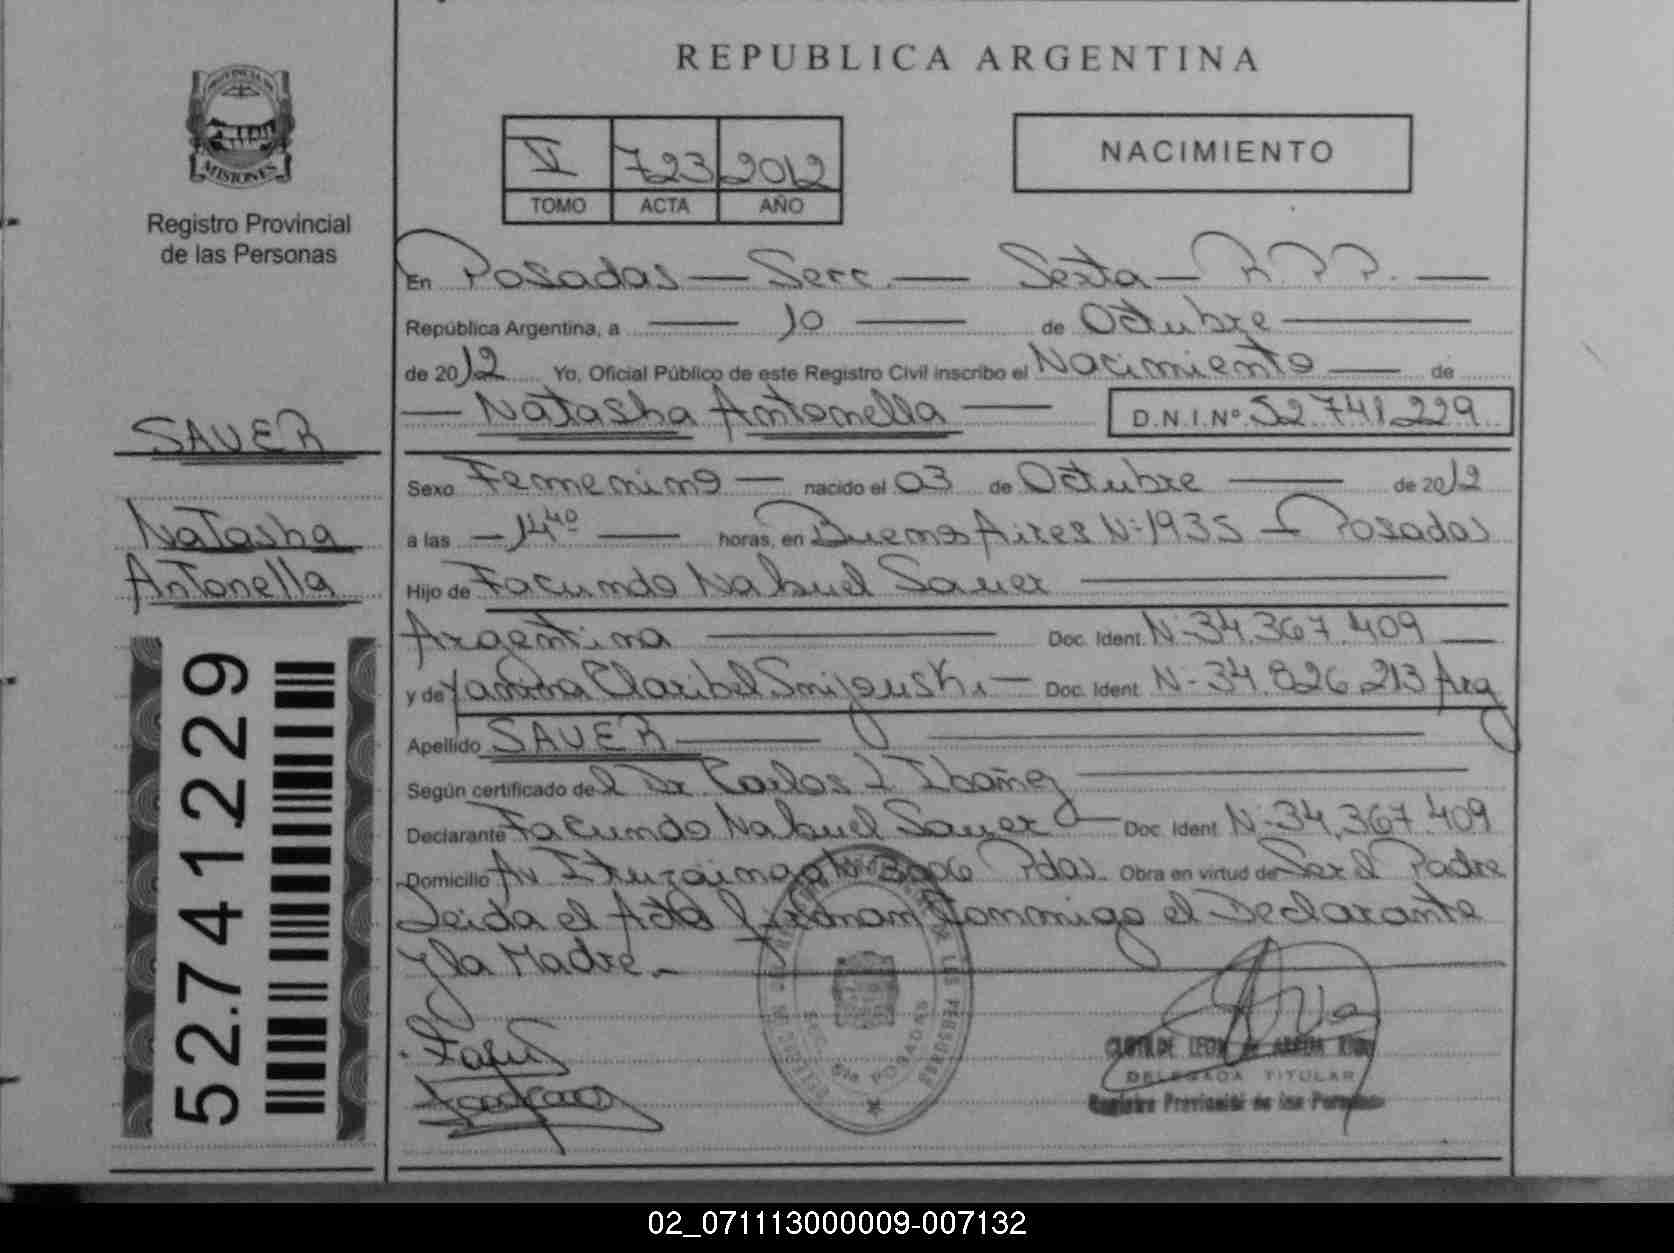 REPUBLICA ARGENTINA
PROVINCIA DE
MISIONES
Registro Provincial
de las Personas
VI 723 2012
TOMO ACTA AÑO
NACIMIENTO
En Posadas — Secc. — Sexta — R.P.P. —
República Argentina, a — 10 — de Octubre —
de 2012 Yo, Oficial Público de este Registro Civil inscribo el Nacimiento — de
— Natasha Antonella — D.N.I.Nº 52.741.229
SAUER
Natasha
Antonella
Sexo Femenino — nacido el 03 de Octubre — de 2012
a las — 14 40 — horas, en Buenos Aires Nº 1935 — Posadas
Hijo de Facundo Nahuel Sauer —
Argentina — Doc. Ident. Nº 34.367.409 —
y de Claribel — Doc. Ident Nº 34.826.213 Arg
Apellido SAUER —
Según certificado del Dr Carlos I Ibañez —
Declarante Facundo Nahuel Sauer — Doc. Ident Nº 34.367.409
Domicilio Av Ituzaingo Pdas. Obra en virtud de Ser el Padre
Leida el Acta firman conmigo el Declarante
y la Madre. —
52.741.229
SECC. 6ta POSADAS
CLOTILDE LEON de
DELEGADA TITULAR
Registro Provincial de las Personas
02_071113000009-007132